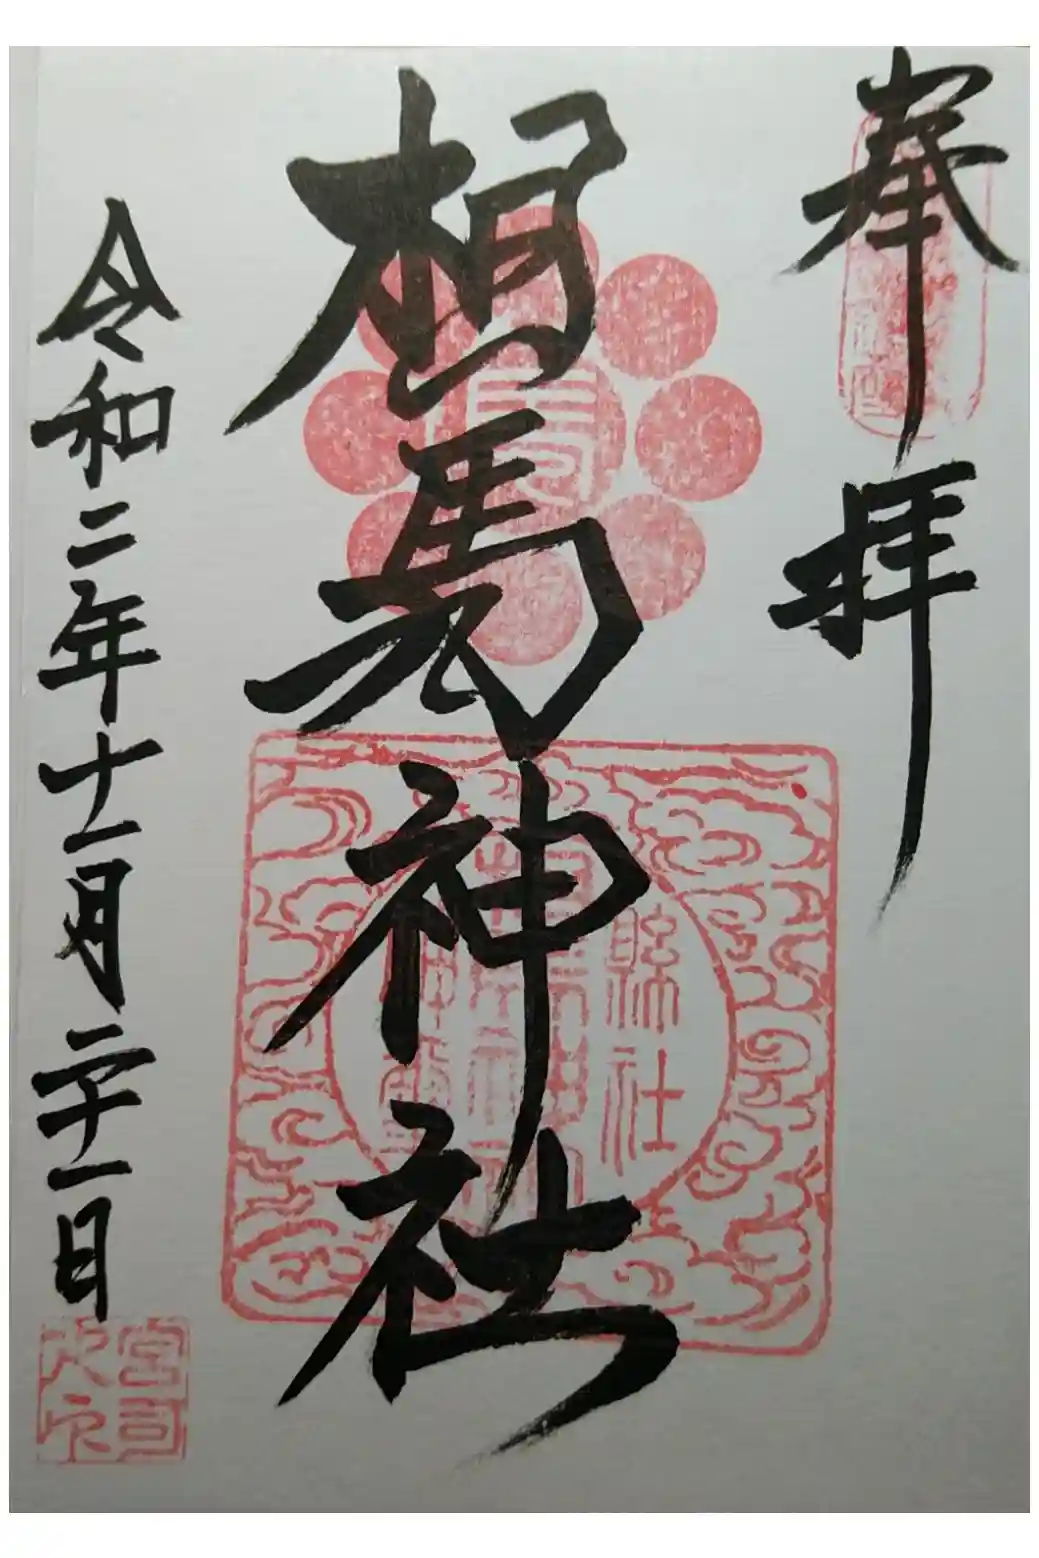 奉拝
相馬神社
縣社
令和二年十一月二十一日
宮司之印